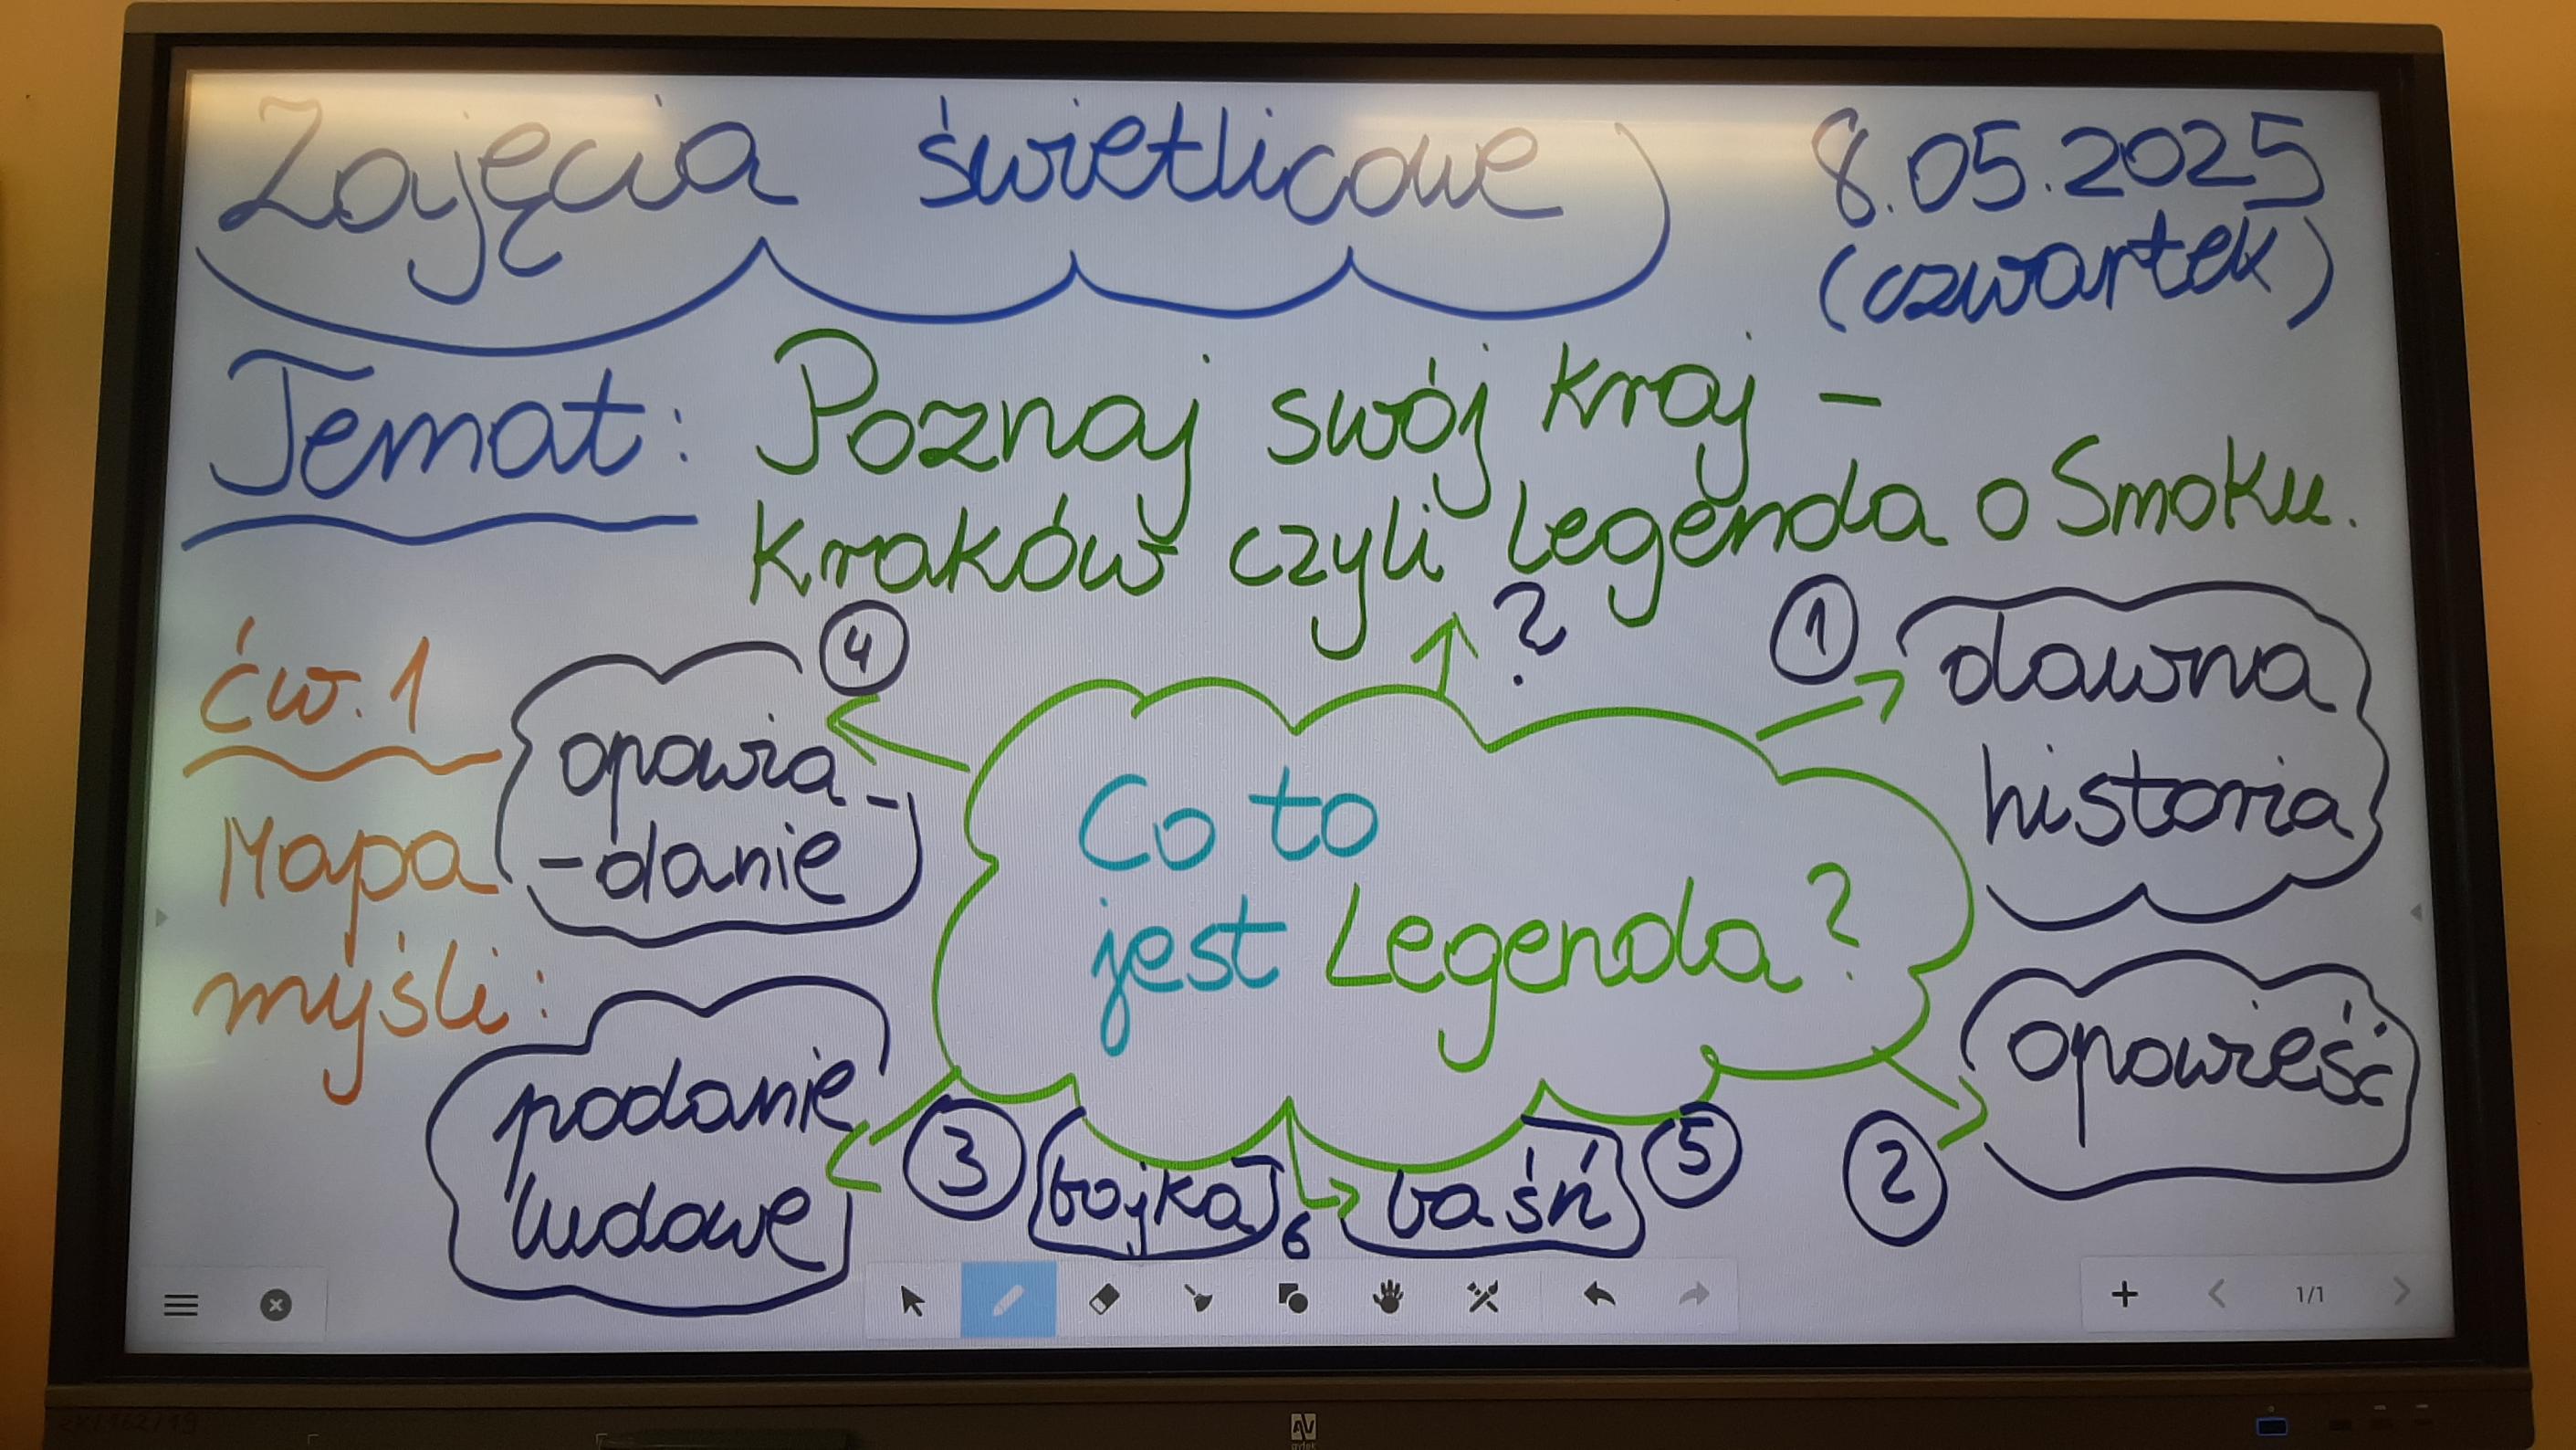 Zajęcia świetlicowe
8.05.2025
(czwartek)
Temat: Poznaj swój kraj –
Kraków czyli legenda o Smoku.
ćw. 1
Mapa
myśli:
Co to
jest Legenda?
?
1
dawna
historia
2
opowieść
3
podanie
ludowe
4
opowia-
-danie
baśń 5
bajka 6
1/1
AV